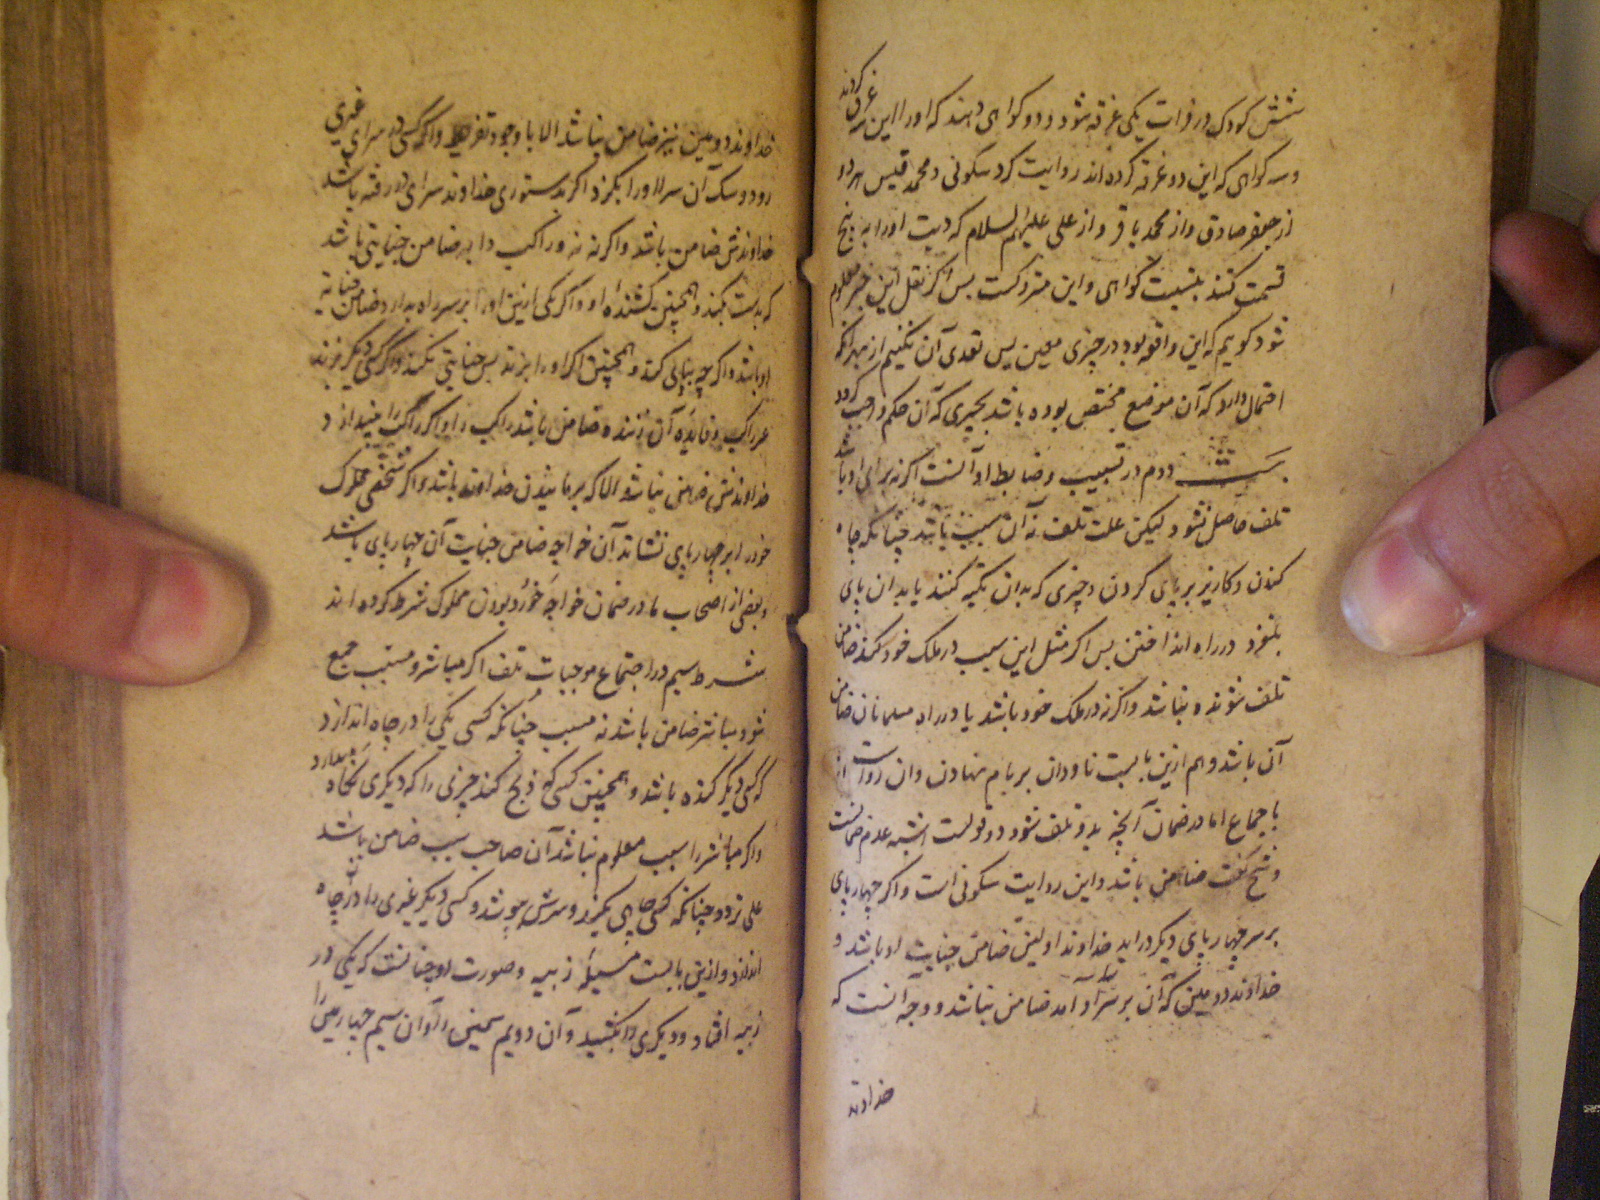 شش کودک در فرات یکی غرقه شود و دو کواهی دهند که او را این سه غرق کردند
و سه کواهی که این دو غرقه کرده اند روایت کرد سکونی و محمد قیس هر دو
از جعفر صادق و از محمد باقر و از علی علیهم السلام که دیت او را به پنج
قسمت کنند بنسبت کواهی و این متروکست پس اکر نقل این خبر معلوم
شود کوییم که این واقعه بود در چیزی معین پس تعدی آن نکنیم از بهر آنکه
احتمال دارد که آن موضع مختص بوده باشد بچیزی که آن حکم واجب کردد
بحث دوم در تسبیب و ضابط او آنست اکر نه برای او باشد
تلف حاصل نشود لیکن علت تلف نه آن سبب باشد چنانکه چاه
کندن و کاریز بر پای کردن و چیزی که بدان تکیه کنند یا بدان پای
بلغزد در راه انداختن پس اکر مثل این سبب در ملک خود کند ضامن
تلف شونده نباشد و اکر نه در ملک خود باشد یا در راه مسلمانان ضامن
آن باشد و هم ازین بابست ناودان بر بام نهادن و آن رواست از
باجماع اما در ضمان آنچه بدو تلف شود دو قولست اشبه عدم ضمانست
و شیخ کفت ضامن باشد و این روایت سکونی است و اکر چهارپای
بر سر چهارپای دیکر در اید خداوند اولین ضامن جنایت او باشد و
خداوند دومین که آن بر سر او آمد ضامن نباشد و وجه آنست که
خداوند
خداوند دومین نیز ضامن نباشد الا با وجود تفریط و اکر کسی در سرای غیری
رود و سک آن سرا او را بکزد اکر بدستوری خداوند سرای در رفته باشد
خداوندش ضامن باشد و اکر نه نه و راکب دابه ضامن جنایتی باشد
که بدست بکند و همچنین کشنده او و اکر یکی ازین او را بر سر راه بدارد ضامن جنایة
او باشد و اکر چه بپای کند و همچنین اکر او را بزند پس جنایتی بکند و اکر کسی دیکر بزند
غیر راکب و قایده آن زننده ضامن باشد راکب را و اکر راکب را بیندازد
خداوندش ضامن نباشد الا که برمانیدن خداوند باشد و اکر شخصی مملوک
خود را بر چهارپای نشاند آن خواجه ضامن جنایت آن چهارپای باشد
و بعضی از اصحاب ما در ضمان خواجه خورد بودن مملوک شرط کرده اند
شرط سیم در اجتماع موجبات تلف اکر مباشر و مسبب جمع
شود مباشر ضامن باشد نه مسبب چنانکه کسی یکی را در چاه اندازد
که کسی دیکر کنده باشد و همچنین کسی که ذبح کند چیزی را که دیکری نکاه میدارد
و اکر مباشر را سبب معلوم نباشد آن صاحب سبب ضامن باشد
علی تردد چنانکه کسی چاهی بکند و سرش بپوشد و کسی دیکر غیری را در چاه
اندازد و ازین بابست مسیله زبیه و صورت او چنانست که یکی در
زبیه افتاد و دیکری را بکشید و آن دویم سیمین را و آن سیم چهارمین را